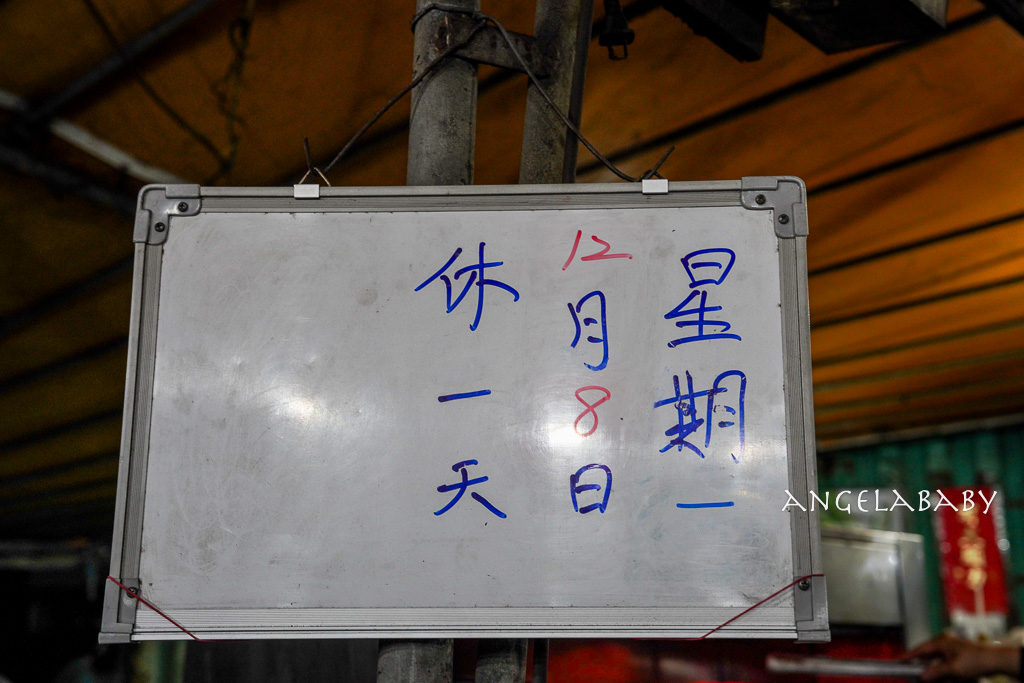 星期一
12月8日
休一天
ANGELABABY